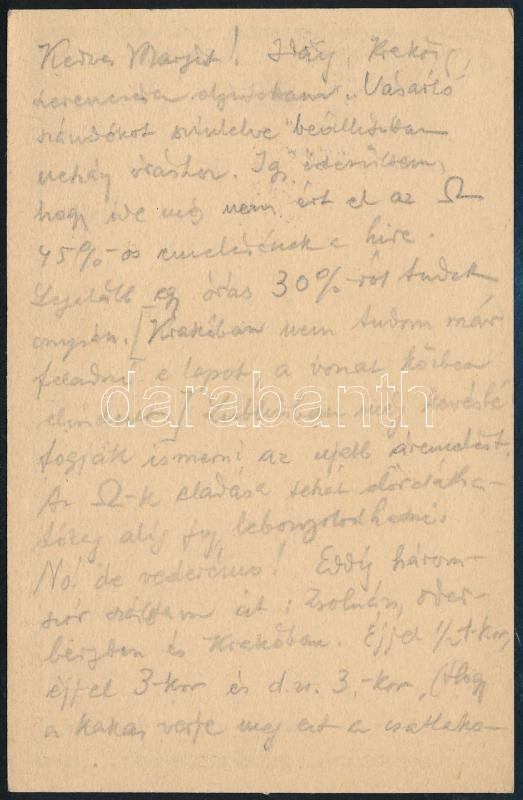 Kedves Margit! Idáig, Krakóig,
szerencsésen eljutottam. Vásárló
szándékot színlelve bevallottam
néhány óráshoz. Így
hogy ide még nem ért el az Ω
45%-os emelésének a híre.
Legalább egy órás 30%-ról tudott
csupán. [Krakóban nem tudom már
feladni e lapot, a vonat közben
elindult] még kevésbé
fogják ismerni az újabb áremelést.
Az Ω-k eladása tehát
alig fog lebonyolódhatni.
No! de vederemo! Eddig három-
szor szálltam át: Zsolnán, Oder-
bergben és Krakóban. Éjjel 1/2 1-kor,
éjjel 3-kor és d.u. 3.-kor. (Hogy
a kakas verje meg ezt a csatlako-
darabanth